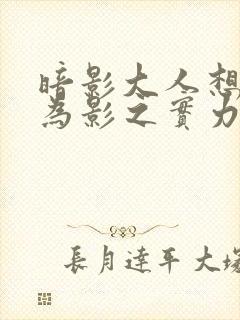 暗影大人想
為影之實力
長月達平 大塚